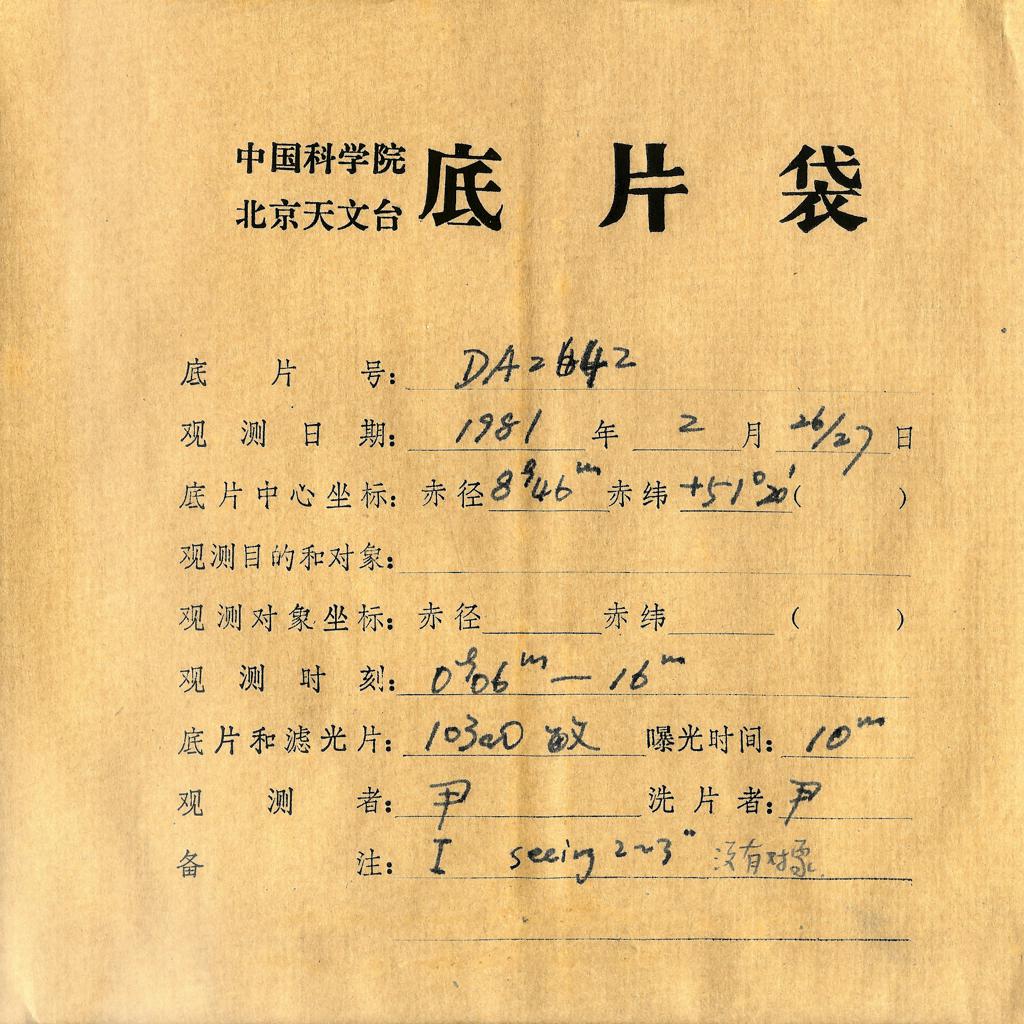 中国科学院
北京天文台
底片袋
底片号: DA2642
观测日期: 1981 年 2 月 26/27 日
底片中心坐标: 赤径 8h46m 赤纬 +51°20′ ( )
观测目的和对象:
观测对象坐标: 赤径 赤纬 ( )
观测时刻: 0h06m — 16m
底片和滤光片: 103aO 敏 曝光时间: 10m
观测者: 尹 洗片者: 尹
备注: I seeing 2~3" 没有对象.